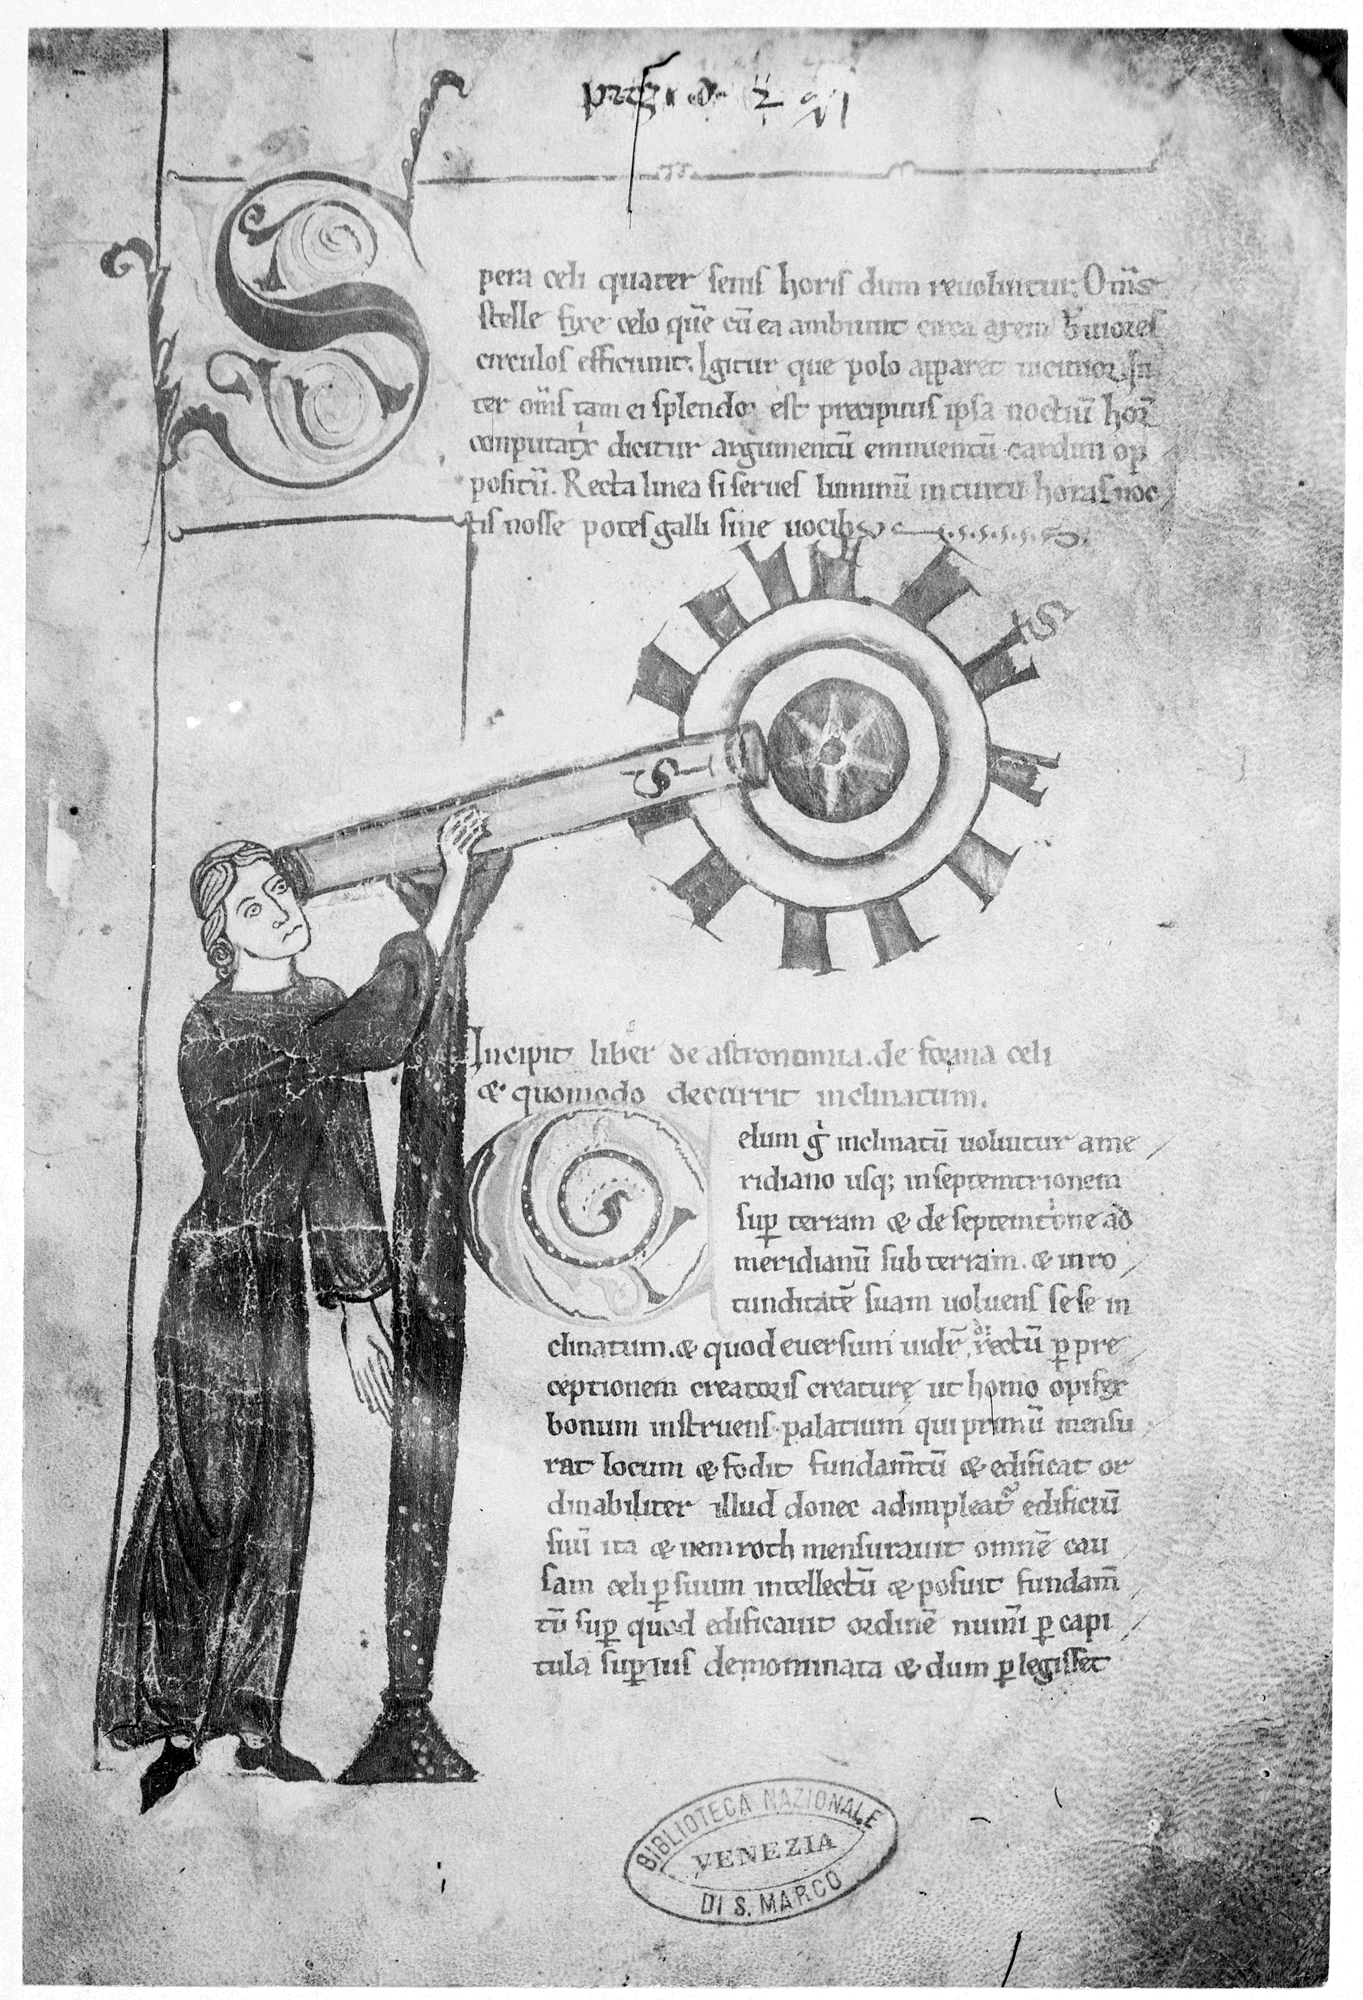 Spera celi quater senis horis dum reuoluitur. Om̅s
stelle fixe celo que̅ cu̅ ea ambiunt circa axem breuiores
circulos efficiunt. Igitur que polo apparet uicinior. In
ter om̅s tam ei splendor est precipuus ipsa noctiu̅ hor̅
computatrix dicitur argumentu̅ eminentu̅ cardini op
positu̅. Recta linea si serues luminu̅ intuitu horas noc
tis nosse potes galli sine uocib;
S
S
Incipit liber de astronimia. de forma celi
& quomodo decurrit inclinatum.
Celum inclinatu̅ uoluitur ame
ridiano usq; in septemtrionem
sup̱ terram & de septemtrione ad
meridianu̅ sub terram. & in ro
tunditate̅ suam uoluens se se in
clinatum. & quod euersum uidr̅ rectu̅ ꝑ pre
ceptionem creatoris creature̜ ut homo opifex
bonum instruens palatium qui primu̅ mensu
rat locum & fodit fundam̅tu̅ & edificat or
dinabiliter illud donec adimpleat edificiu̅
suu̅ ita & nemroth mensurauit omne̅ cau
sam celi ꝑ suum intellectu̅ & posuit fundam̅
tu̅ sup̱ quod edificauit ordine̅ num̅i ꝑ capi
tula sup̱ius demominata & dum ꝑlegisset
BIBLIOTECA NAZIONALE
VENEZIA
DI S. MARCO